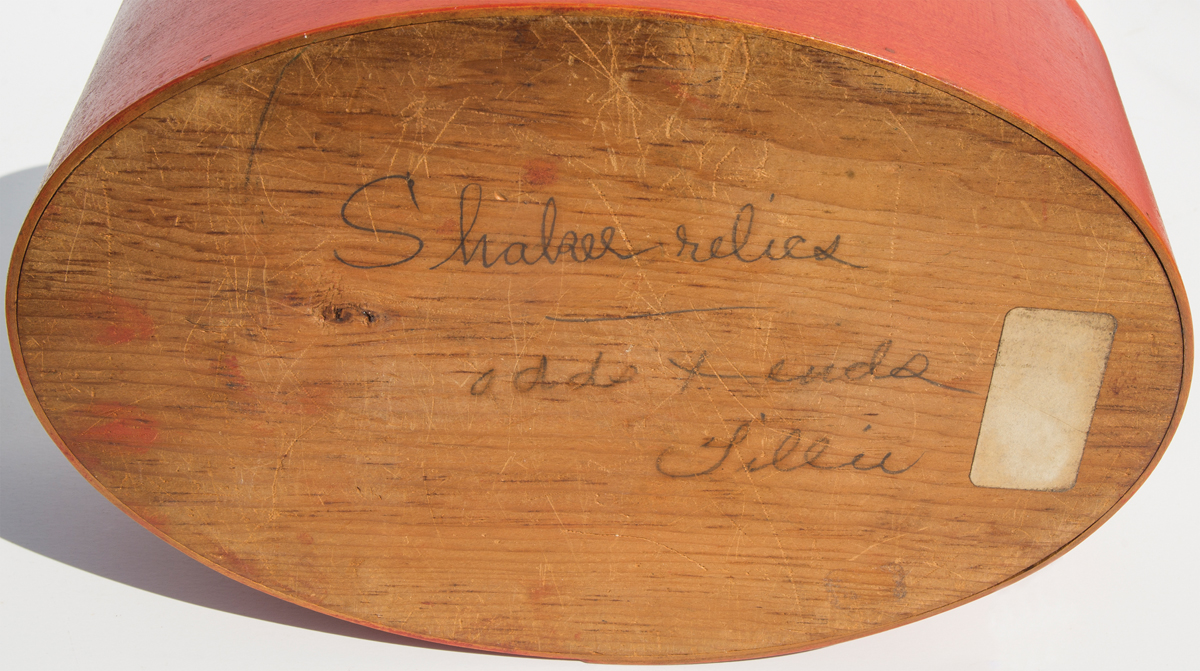 Shaker relics
odds & ends
Tillie